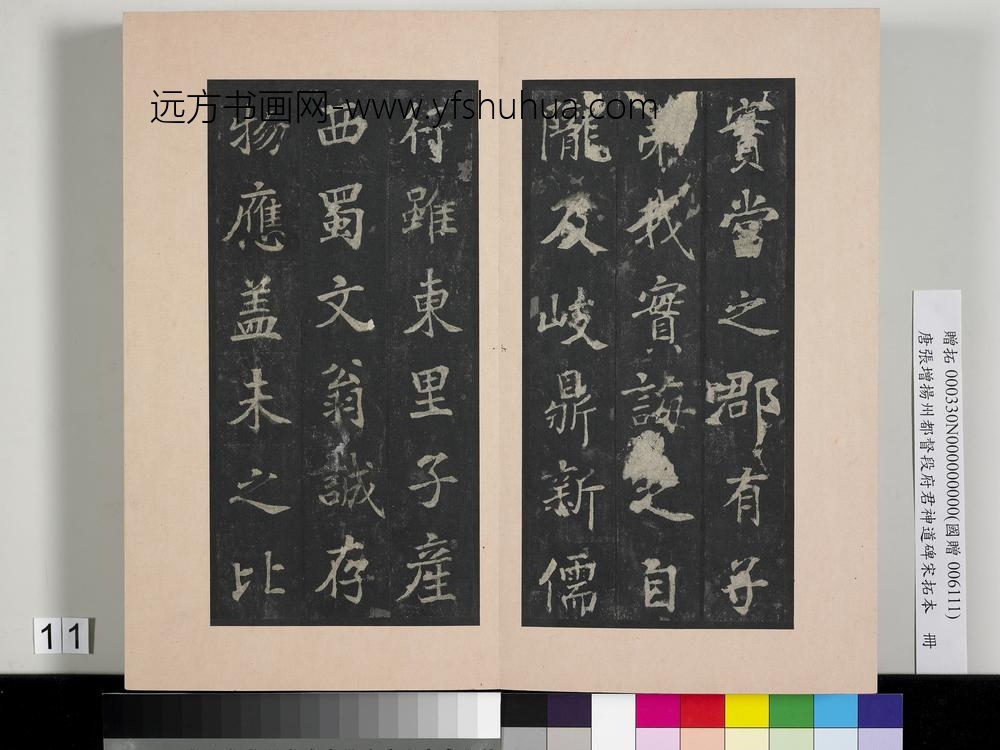 远方书画网-www.yfshuhua.com
實堂之郡有子
弟我實誨之自
隴及岐鼎新儒
術雖東里子產
西蜀文翁誠存
物應盖未之比
贈拓 000330N000000000(國贈 006111)
唐張增揚州都督段府君神道碑宋拓本 冊
11